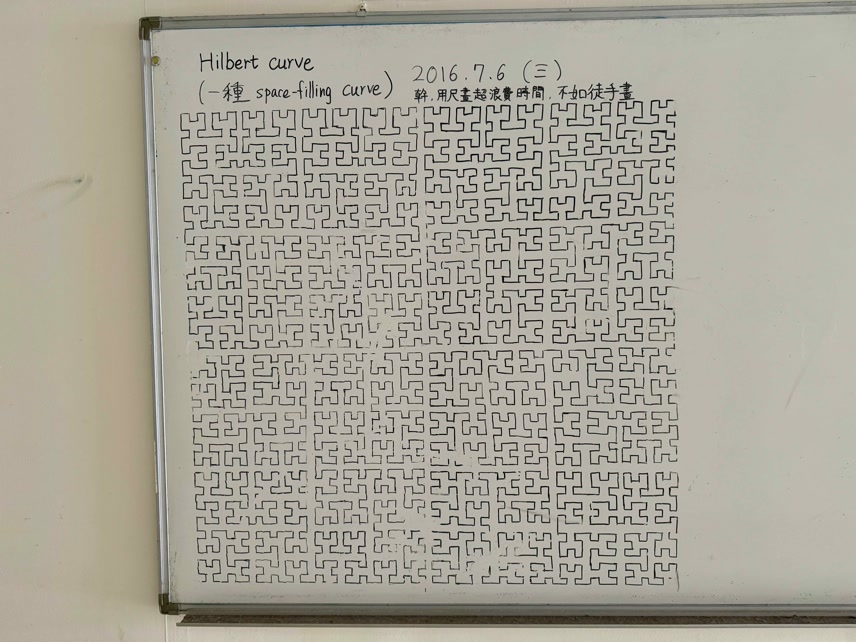 Hilbert curve
(一種 space-filling curve)
2016.7.6 (三)
幹，用尺畫超浪費時間，不如徒手畫